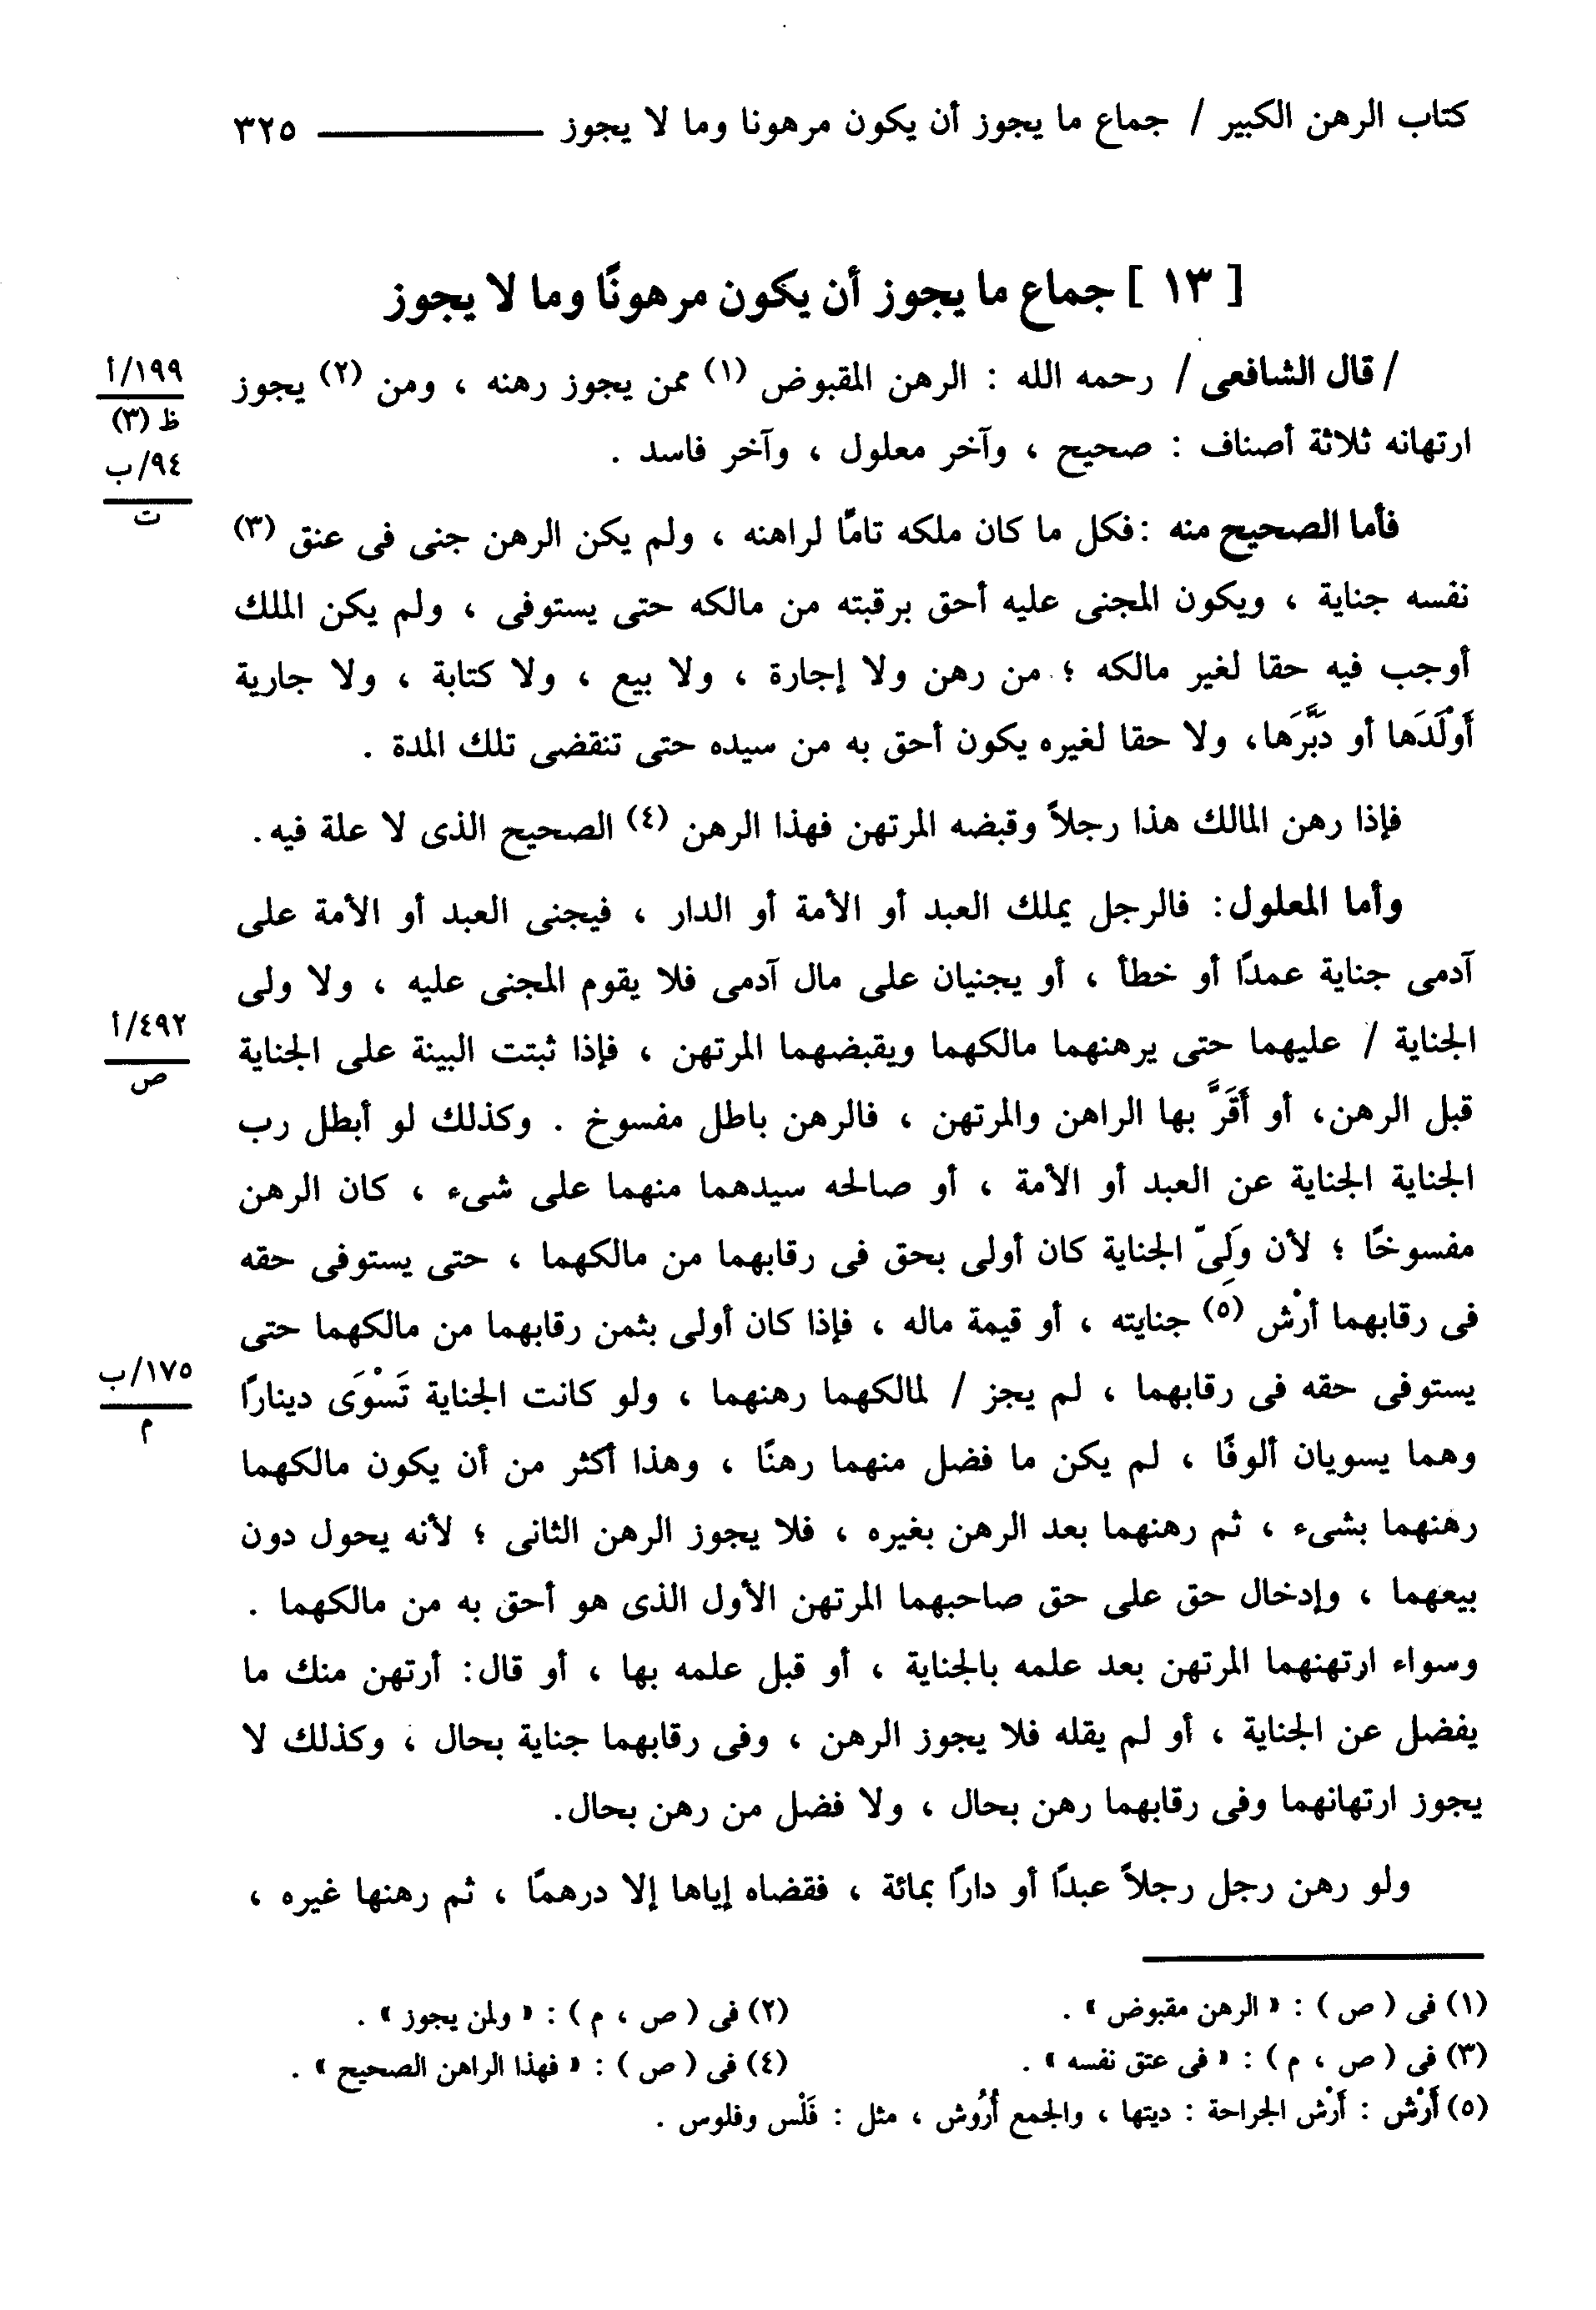 كتاب الرهن الكبير / جماع ما يجوز أن يكون مرهونا وما لا يجوز ٣٢٥
[ ١٣ ] جماع ما يجوز أن يكون مرهونًا وما لا يجوز
/ قال الشافعى / رحمه الله : الرهن المقبوض (١) ممن يجوز رهنه ، ومن (٢) يجوز
١٩٩/أ
ظ (٣)
ارتهانه ثلاثة أصناف : صحيح ، وآخر معلول ، وآخر فاسد .
٩٤/ب
ت
فأما الصحيح منه : فكل ما كان ملكه تامًا لراهنه ، ولم يكن الرهن جنى فى عنق (٣)
نفسه جناية ، ويكون المجنى عليه أحق برقبته من مالكه حتى يستوفى ، ولم يكن الملك
أوجب فيه حقا لغير مالكه ؛ من رهن ولا إجارة ، ولا بيع ، ولا كتابة ، ولا جارية
أَوْلَدَها أو دَبَّرَها، ولا حقا لغيره يكون أحق به من سيده حتى تنقضى تلك المدة .
فإذا رهن المالك هذا رجلاً وقبضه المرتهن فهذا الرهن (٤) الصحيح الذى لا علة فيه.
وأما المعلول: فالرجل يملك العبد أو الأمة أو الدار ، فيجنى العبد أو الأمة على
آدمى جناية عمدًا أو خطأ ، أو يجنيان على مال آدمى فلا يقوم المجنى عليه ، ولا ولى
الجناية / عليهما حتى يرهنهما مالكهما ويقبضهما المرتهن ، فإذا ثبتت البينة على الجناية
٤٩٢/أ
ص
قبل الرهن، أو أَقَرَّ بها الراهن والمرتهن ، فالرهن باطل مفسوخ . وكذلك لو أبطل رب
الجناية الجناية عن العبد أو الأمة ، أو صالحه سيدهما منهما على شىء ، كان الرهن
مفسوخًا ؛ لأن وَلِىّ الجناية كان أولى بحق فى رقابهما من مالكهما ، حتى يستوفى حقه
فى رقابهما أرْش (٥) جنايته ، أو قيمة ماله ، فإذا كان أولى بثمن رقابهما من مالكهما حتى
يستوفى حقه فى رقابهما ، لم يجز / لمالكهما رهنهما ، ولو كانت الجناية تَسْوَى دينارًا
١٧٥/ب
م
وهما يسويان ألوفًا ، لم يكن ما فضل منهما رهنًا ، وهذا أكثر من أن يكون مالكهما
رهنهما بشىء ، ثم رهنهما بعد الرهن بغيره ، فلا يجوز الرهن الثانى ؛ لأنه يحول دون
بيعهما ، وإدخال حق على حق صاحبهما المرتهن الأول الذى هو أحق به من مالكهما .
وسواء ارتهنهما المرتهن بعد علمه بالجناية ، أو قبل علمه بها ، أو قال: أرتهن منك ما
يفضل عن الجناية ، أو لم يقله فلا يجوز الرهن ، وفى رقابهما جناية بحال ، وكذلك لا
يجوز ارتهانهما وفى رقابهما رهن بحال ، ولا فضل من رهن بحال.
ولو رهن رجل رجلاً عبدًا أو دارًا بمائة ، فقضاه إياها إلا درهمًا ، ثم رهنها غيره ،
(١) فى ( ص ) : « الرهن مقبوض » . (٢) فى ( ص ، م ) : « ولمن يجوز » .
(٣) فى ( ص ، م ) : « فى عتق نفسه » . (٤) فى ( ص ) : « فهذا الراهن الصحيح » .
(٥) أَرْش : أَرْش الجراحة : ديتها ، والجمع أُرُوش ، مثل : فَلْس وفلوس .